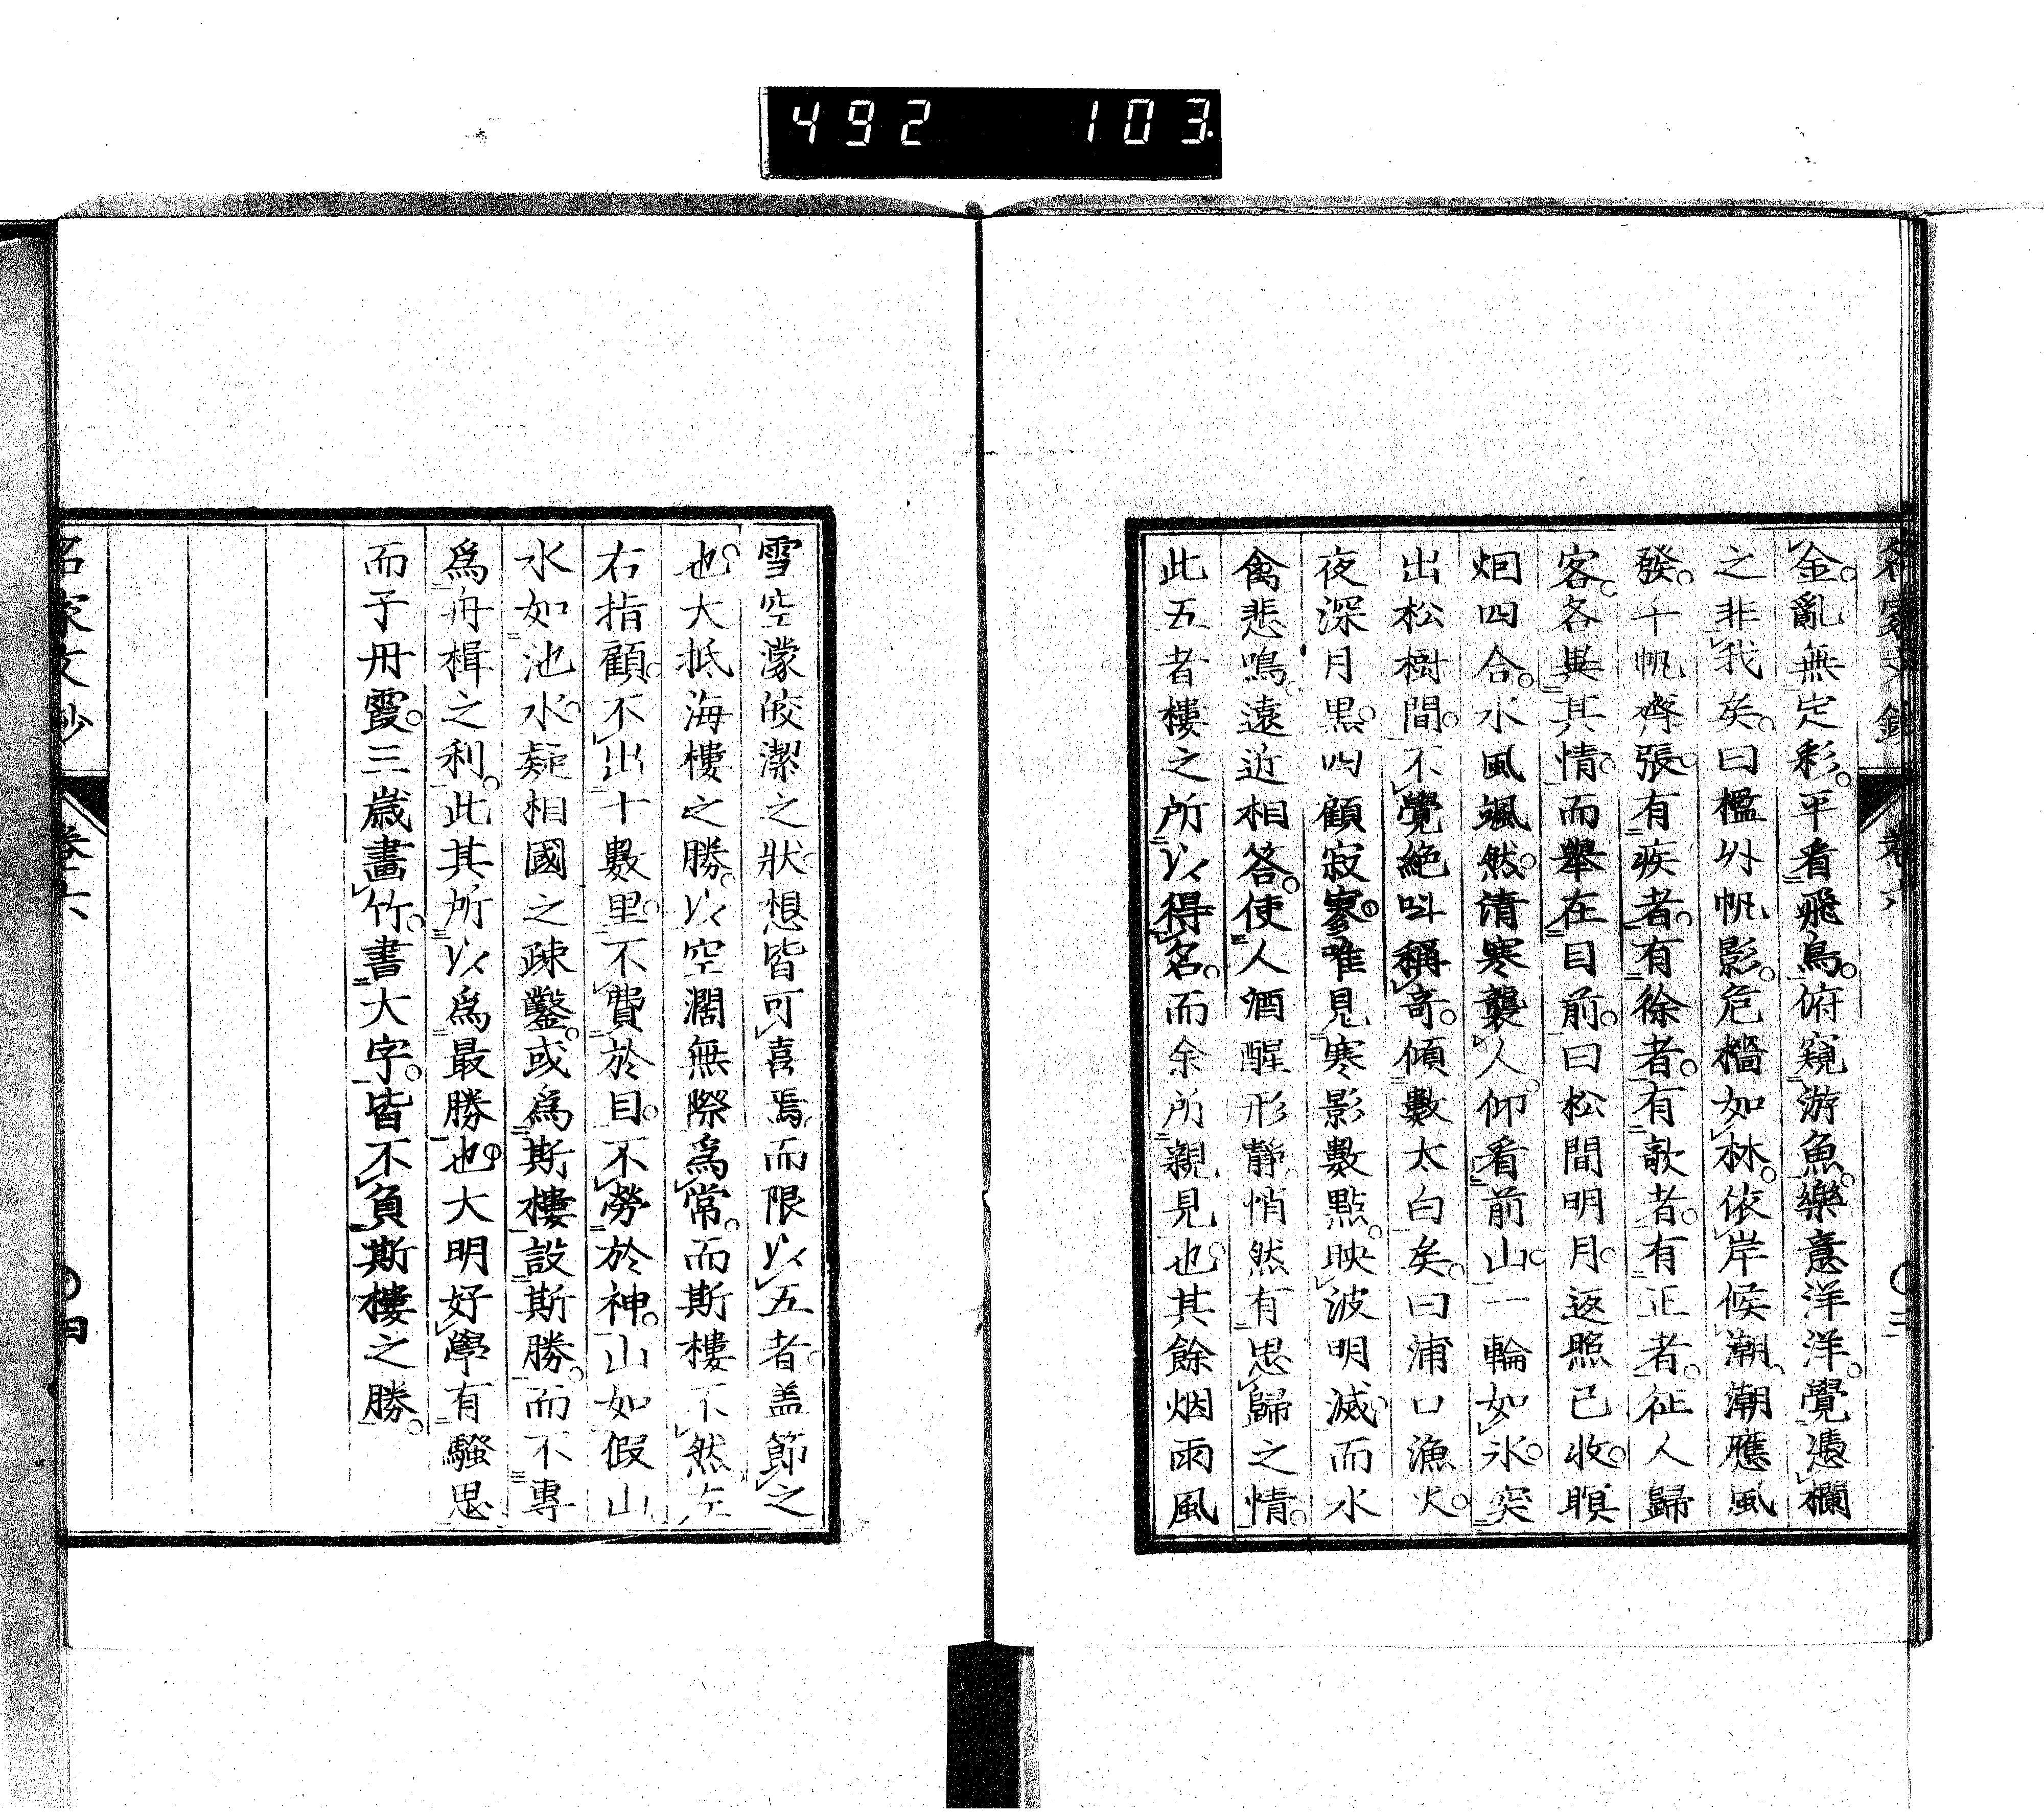 492 103
金。亂無定彩。平看飛鳥。俯窺游魚。樂意洋洋。覺憑欄
之非我矣。曰檻外帆影。危檣如林。依岸候潮。潮應風
發。千帆齊張。有疾者。有徐者。有欹者。有正者。征人歸
客。各異其情。而舉在目前。曰松間明月。返照已收。暝
烟四合。水風颯然。清寒襲人。仰看前山。一輪如氷。突
出松樹間。不覺絕叫稱奇。傾數太白矣。曰浦口漁火。
夜深月黑。四顧寂寥。唯見寒影數點。映波明滅。而水
禽悲鳴。遠近相答。使人酒醒形靜。悄然有思歸之情。
此五者樓之所以得名。而余所親見也。其餘烟雨風
雪空濛皎潔之狀。想皆可喜焉。而限以五者。盖節之
也。大抵海樓之勝。以空濶無際爲常。而斯樓不然。左
右指顧。不出十數里。不費於目。不勞於神。山如假山。
水如池水。疑相國之疎鑿。或爲斯樓設斯勝。而不專
爲舟楫之利。此其所以爲最勝也。大明好學有騷思。
而子丹霞。三歲畫竹。書大字。皆不負斯樓之勝。
名家文抄 卷六 四